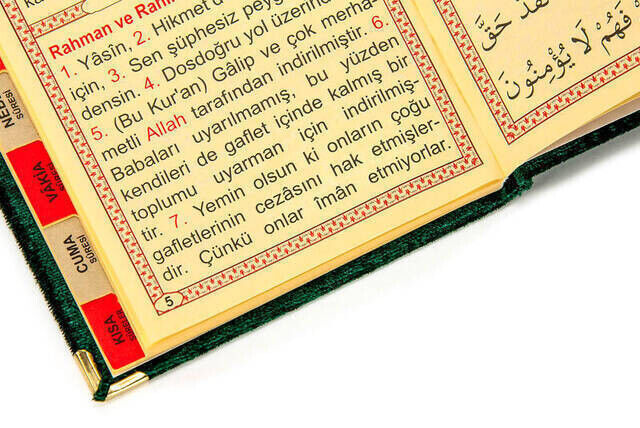 Rahman ve Rahî
1. Yâsîn, 2. Hikmet d
için, 3. Sen şüphesiz peyg
densin. 4. Dosdoğru yol üzerind
5. (Bu Kur'an) Gâlip ve çok merha-
metli Allah tarafından indirilmiştir. 6.
Babaları uyarılmamış, bu yüzden
kendileri de gaflet içinde kalmış bir
toplumu uyarman için indirilmiş-
tir. 7. Yemin olsun ki onların çoğu
gafletlerinin cezâsını hak etmişler-
dir. Çünkü onlar îmân etmiyorlar.
5
حَقَّ
فَهُمْ لَا يُؤْمِنُونَ
NEB
SÛRESİ
VÂKIA
SÛRESİ
CUMA
SÛRESİ
KISA
SÛRELER